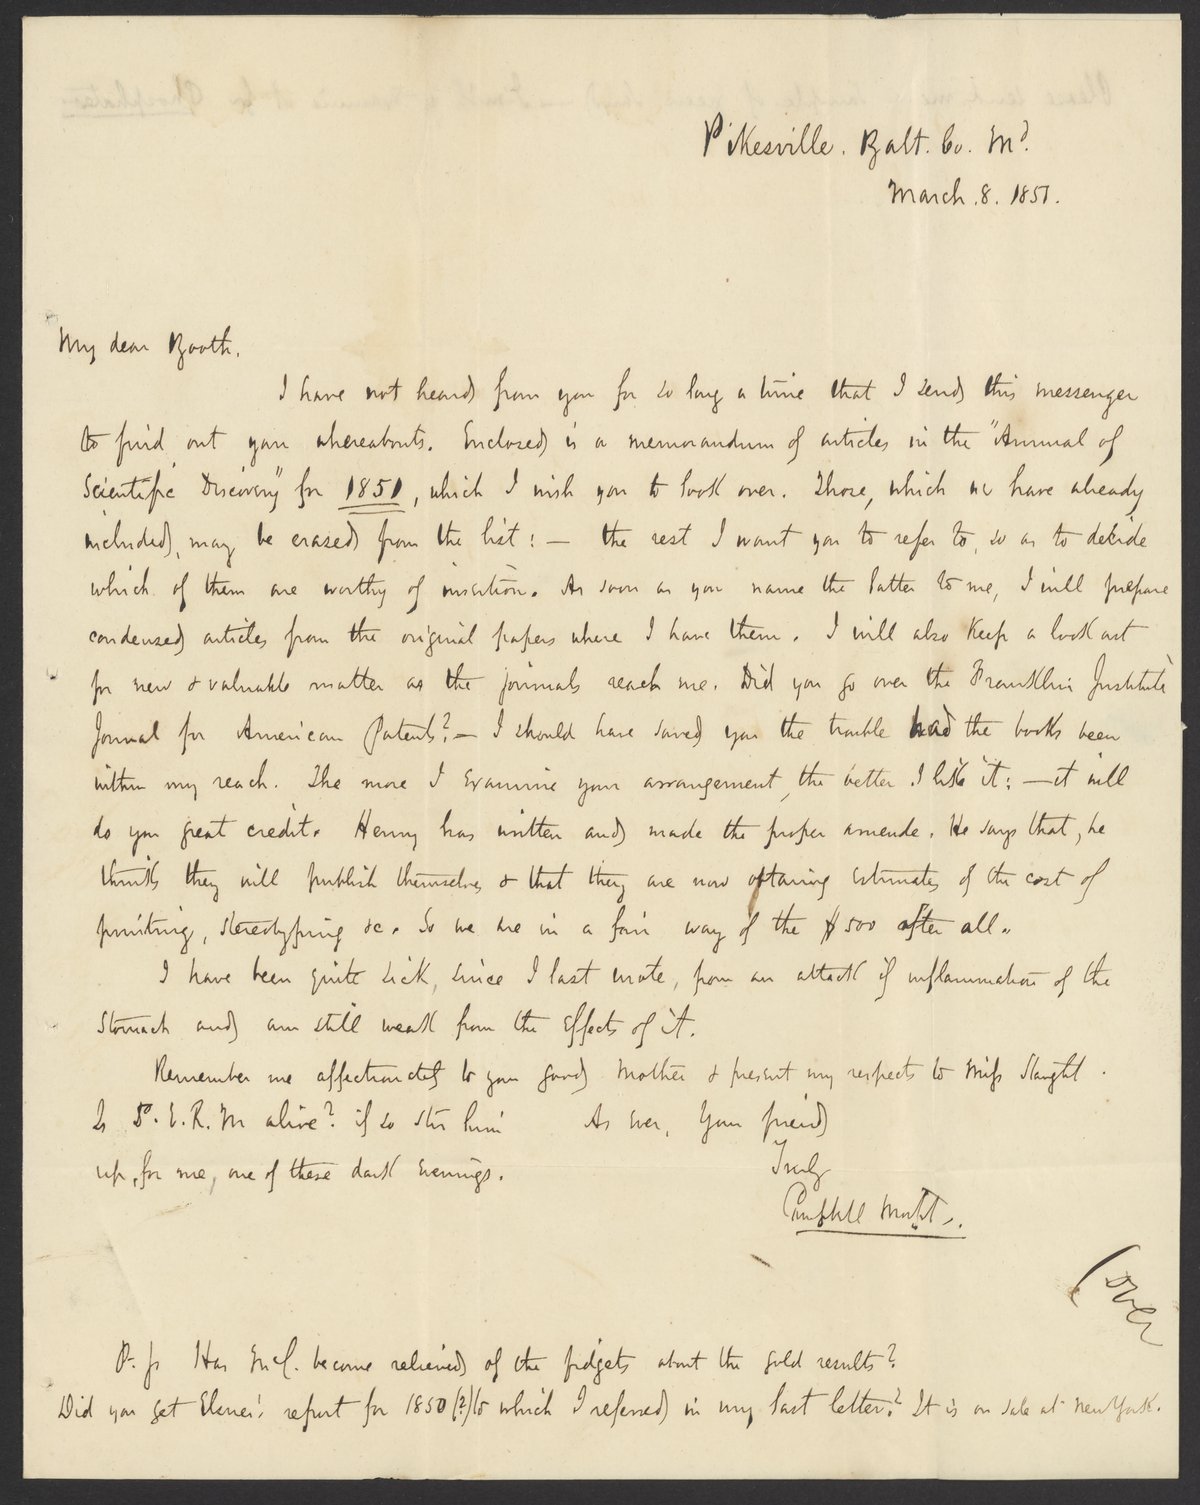 Pikesville. Balt. Co. Md.
March. 8. 1851.
My dear Booth.
I have not heard from you for so long a time that I send this messenger
to find out your whereabouts. Enclosed is a memorandum of articles in the "Annual of
Scientific Discovery" for 1851, which I wish you to look over. Those, which we have already
included, may be erased from the list: — the rest I want you to refer to, so as to decide
which of them are worthy of insertion. As soon as you name the latter to me, I will prepare
condensed articles from the original papers where I have them. I will also keep a look out
for new & valuable matter as the journals reach me. Did you go over the Franklin Institute
Journal for American Patents? — I should have saved you the trouble had the books been
within my reach. The more I examine your arrangement, the better I like it: — it will
do you great credit. Henry has written and made the proper amende. He says that, he
thinks they will publish themselves & that they are now obtaining estimates of the cost of
printing, stereotyping &c. So we are in a fair way of the $500 after all.
I have been quite sick, since I last wrote, from an attack of inflammation of the
Stomach and am still weak from the effects of it.
Remember me affectionately to your good Mother & present my respects to Miss Slaught.
Is E.R.M alive? if so stir him
up, for me, one of these dark evenings.
As Ever, Your friend
Truly
Campbell Morfit.
(over
P.S Has McC. become relieved of the fidgets about the gold results?
Did you get report for 1850 (?) to which I referred in my last letter? It is on sale at New York.